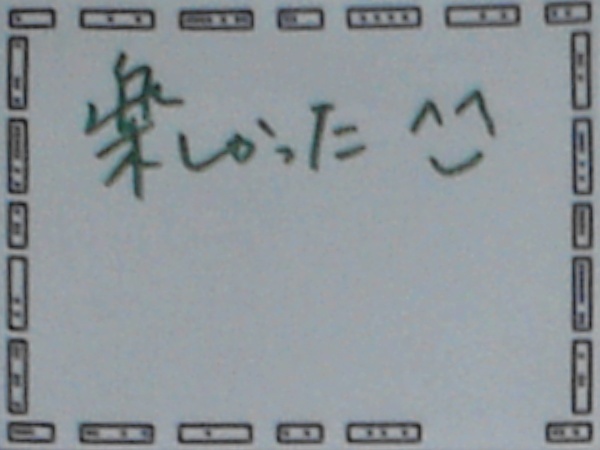 楽しかった ^^